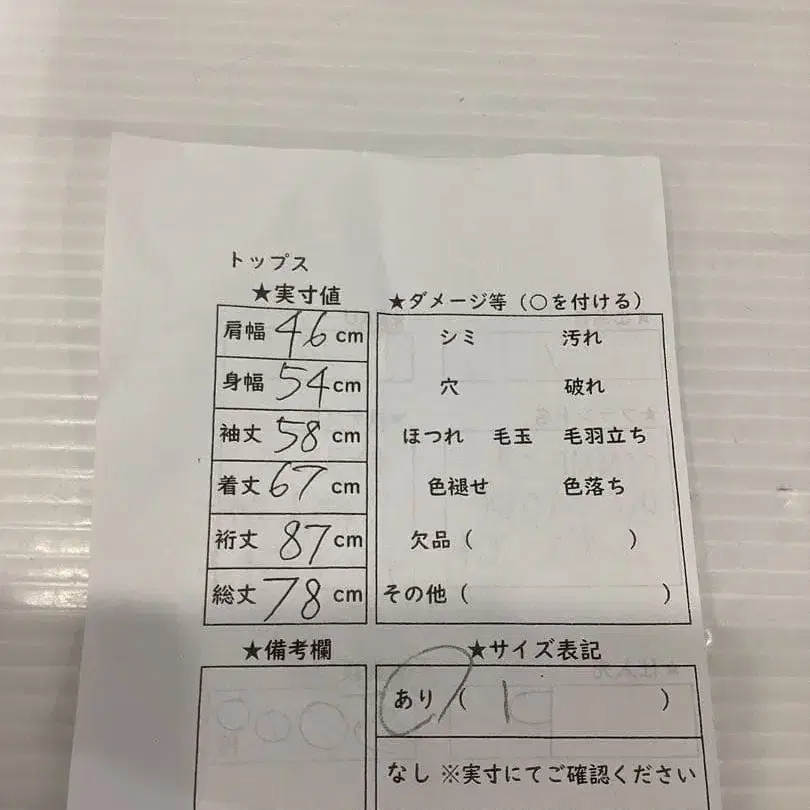 トップス
★実寸値
肩幅 46 cm
身幅 54 cm
袖丈 58 cm
着丈 67 cm
裄丈 87 cm
総丈 78 cm
★ダメージ等（○を付ける）
シミ 汚れ
穴 破れ
ほつれ 毛玉 毛羽立ち
色褪せ 色落ち
欠品（ ）
その他（ ）
★備考欄
★サイズ表記
あり（ ）
なし ※実寸にてご確認ください